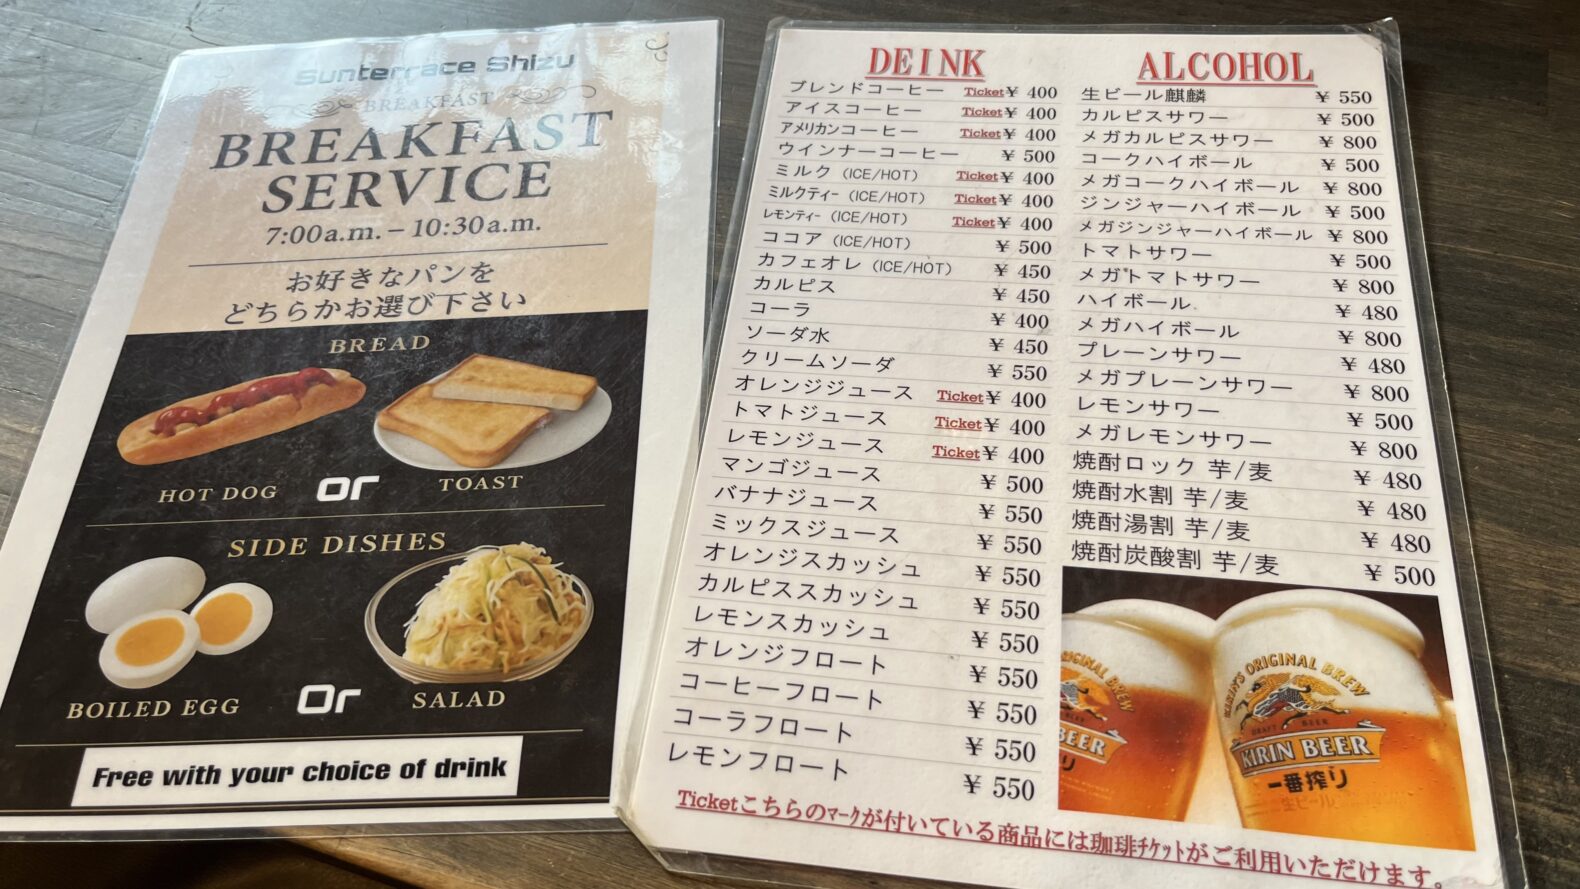 Sunterrace Shizu
BREAKFAST
BREAKFAST
SERVICE
7:00a.m. – 10:30a.m.
お好きなパンを
どちらかお選び下さい
BREAD
HOT DOG or TOAST
SIDE DISHES
BOILED EGG Or SALAD
Free with your choice of drink
DEINK
ブレンドコーヒー Ticket ¥ 400
アイスコーヒー Ticket ¥ 400
アメリカンコーヒー Ticket ¥ 400
ウインナーコーヒー ¥ 500
ミルク (ICE/HOT) Ticket ¥ 400
ミルクティー (ICE/HOT) Ticket ¥ 400
レモンティー (ICE/HOT) Ticket ¥ 400
ココア (ICE/HOT) ¥ 500
カフェオレ (ICE/HOT) ¥ 450
カルピス ¥ 450
コーラ ¥ 400
ソーダ水 ¥ 450
クリームソーダ ¥ 550
オレンジジュース Ticket ¥ 400
トマトジュース Ticket ¥ 400
レモンジュース Ticket ¥ 400
マンゴジュース ¥ 500
バナナジュース ¥ 550
ミックスジュース ¥ 550
オレンジスカッシュ ¥ 550
カルピススカッシュ ¥ 550
レモンスカッシュ ¥ 550
オレンジフロート ¥ 550
コーヒーフロート ¥ 550
コーラフロート ¥ 550
レモンフロート ¥ 550
ALCOHOL
生ビール麒麟 ¥ 550
カルピスサワー ¥ 500
メガカルピスサワー ¥ 800
コークハイボール ¥ 500
メガコークハイボール ¥ 800
ジンジャーハイボール ¥ 500
メガジンジャーハイボール ¥ 800
トマトサワー ¥ 500
メガトマトサワー ¥ 800
ハイボール ¥ 480
メガハイボール ¥ 800
プレーンサワー ¥ 480
メガプレーンサワー ¥ 800
レモンサワー ¥ 500
メガレモンサワー ¥ 800
焼酎ロック 芋/麦 ¥ 480
焼酎水割 芋/麦 ¥ 480
焼酎湯割 芋/麦 ¥ 480
焼酎炭酸割 芋/麦 ¥ 500
ORIGINAL BREW
BEER
り
KIRIN'S ORIGINAL BREW
DRAFT BEER
KIRIN BEER
一番搾り
生ビール
Ticketこちらのマークが付いている商品には珈琲チケットがご利用いただけます。